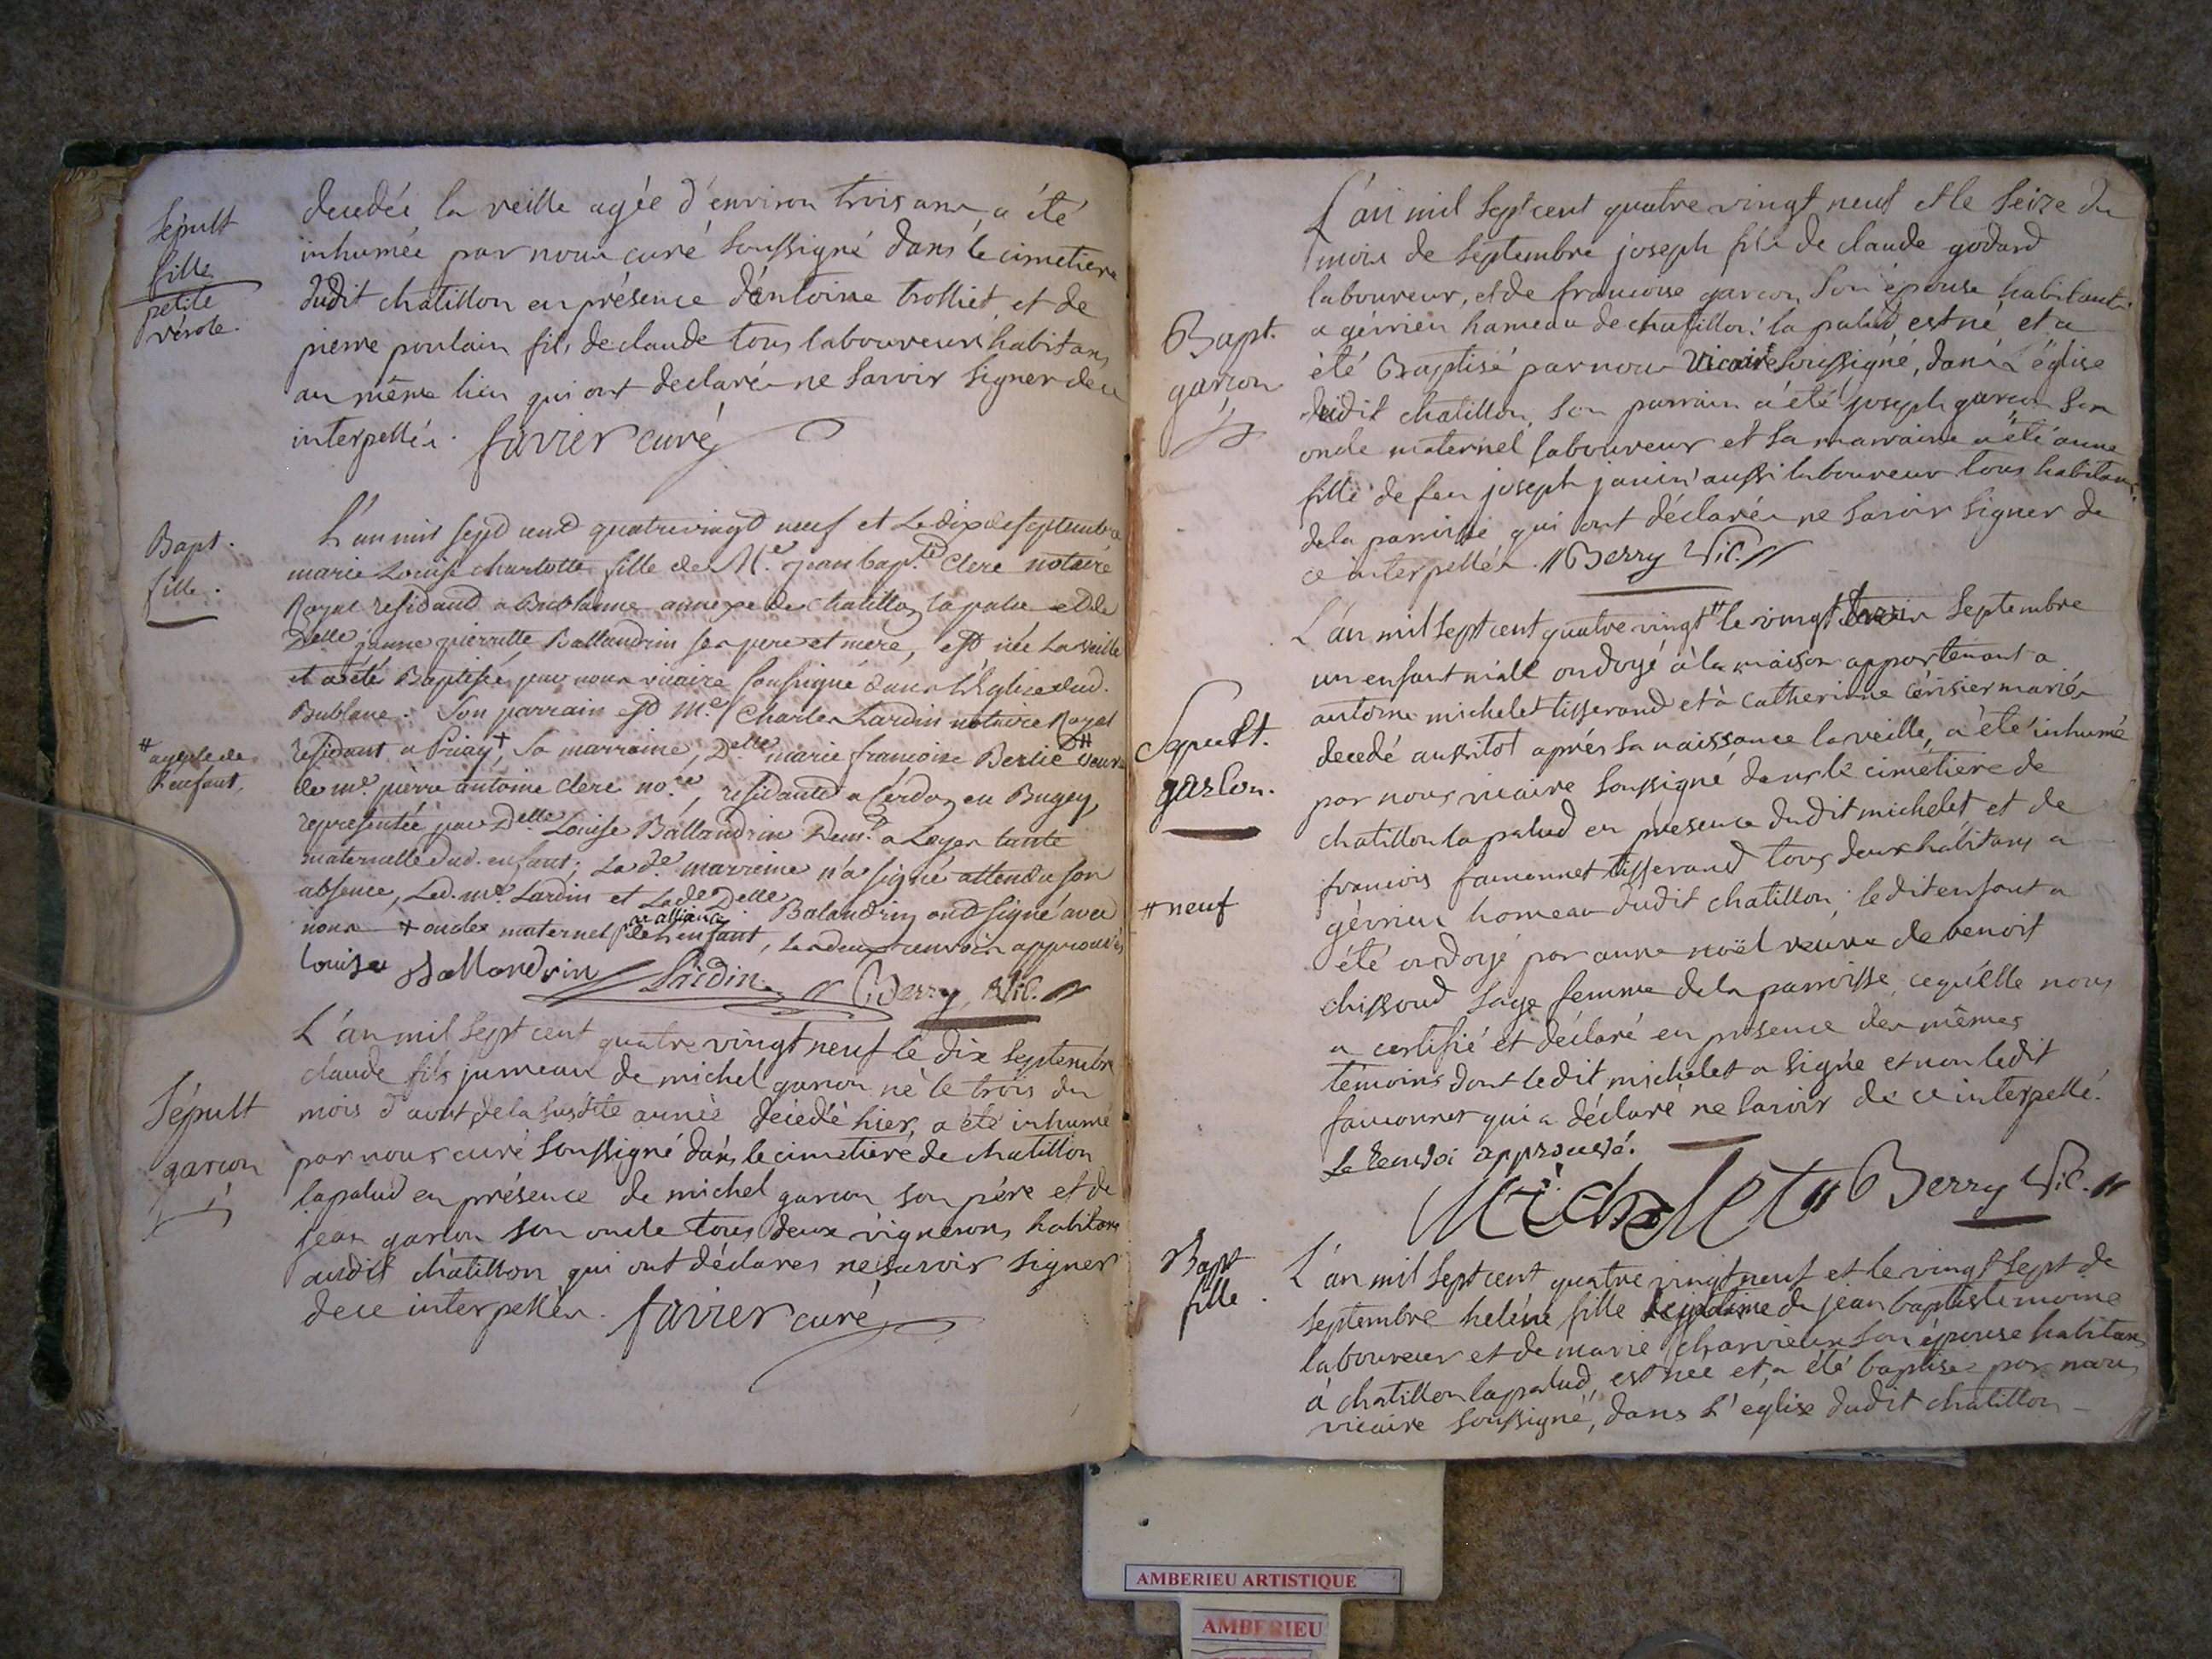 Sépult
fille
petite
vérole.
decedée la veille agée d'environ trois ans a été
inhumée par nous curé soussigné dans le cimetiere
dudit chatillon en présence d'entoine trolliet et de
pierre poulain fils de claude tous laboureurs habitans
au même lieu qui ont declarés ne savoir signer de ce
interpellés. favier curé
Bapt.
fille.
L'an mil sept cent quatrevingt neuf et le dix de septembre
marie Louise charlotte fille de Me. jean bapte. Clerc notaire
Royal residand a Bublanne annexe de chatillon la palu et de
Delle jeanne pierrette Ballandrin ses pere et mere, est née la veille
et a été Baptisée par nous vicaire soussigné dans l'Eglise dud.
Bublane. Son parrain est Me. Charles Lardin notaire Royal
residant a Priay +, sa marraine, Delle marie francoise Berlie # veuve
# ayeule de
l'enfant,
de me. pierre antoine Clerc nore, residante a Cerdon en Bugey,
représentée par Delle Louise Ballandrin Demt. a Loyes tante
maternelle dud. enfant; La de. marraine n'a signé attendu son
absence, Led. me. Lardin et Lade Delle Balandrin ont signé avec
nous + oncle maternel par alliance de l'enfant, les deux renvois approuvés
Louise Ballandrin Lardin // Berry Vic. //
Sépult
garcon
L'an mil sept cent quatre vingt neuf le dix septembre
claude fils jumeau de michel garcon né le trois du
mois d'aout de la susdite année décédé hier, a été inhumé
par nous curé soussigné dans le cimetiere de chatillon
lapalud en présence de michel garcon son père et de
jean garcon son oncle tous deux vignerons habitans
audit châtillon qui ont déclarés ne savoir signer
de ce interpellés. favier curé
Bapt.
garcon
L'an mil sept cent quatre vingt neuf et le seize du
mois de septembre joseph fils de claude godard
laboureur, et de francoise garcon son épouse habitants
a gévrieu hameau de chatillon la palud est né et a
été Baptisé par nous vicaire soussigné, dans L'église
dudit chatillon, son parrain a été joseph garcon son
oncle maternel laboureur et sa marraine a été anne
fille de feu joseph janin aussi laboureur tous habitans
de la paroisse qui ont déclarés ne savoir signer de
ce interpellés. // Berry Vic. //
Sepult.
garcon.
# neuf
L'an mil sept cent quatre vingt # le vingt septembre
un enfant mâle ondoyé à la maison appartenant a
antoine michelet tisserand et à catherine cerisier mariés
decedé aussitot aprés sa naissance la veille, a été inhumé
par nous vicaire soussigné dans le cimetiere de
chatillon la palud en presence dudit michelet et de
francois fauconnet tisserand tous deux habitans a
gévrieu hameau dudit chatillon; ledit enfant a
été ondoyé par anne noël veuve de benoit
chissoud sage femme de la parroisse, ce qu'elle nous
a certifié et déclaré en présence des mêmes
témoins dont ledit michelet a signé et non ledit
fauconnet qui a déclaré ne savoir de ce interpellé.
Le renvoi approuvé.
Michelet // Berry Vic. //
Bapt
fille.
L'an mil sept cent quatre vingt neuf et le vingt sept de
septembre helène fille legitime de jean baptiste moine
laboureur et de marie charvieux son épouse habitans
à chatillon lapalud, est née et a été baptisée par nous
vicaire soussigné, dans L'eglise dudit chatillon
AMBERIEU ARTISTIQUE
AMBERIEU